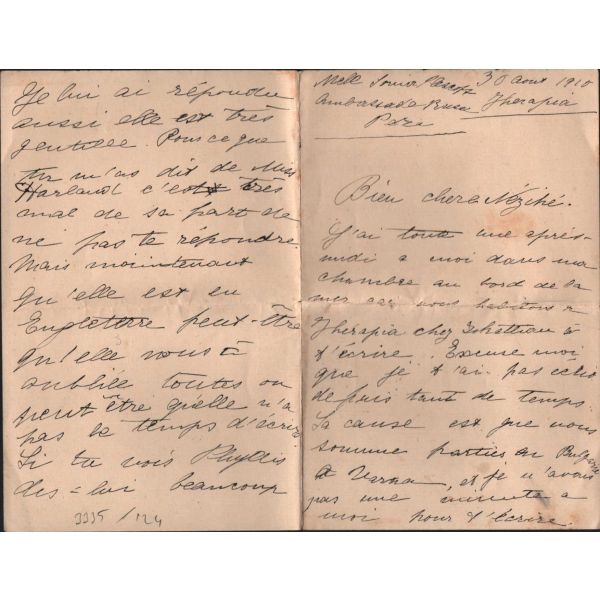 Melle Sonia 30 aout 1910
Ambassade Russe Therapia
Pera
Bien chere Nézihé.
J'ai toute une après-
midi a moi dans ma
chambre au bord de la
mer car nous habitons a
Therapia chez à
t'écrire. Excuse moi
que je t'ai pas ecrie
depuis tant de temps.
La cause est que nous
somme parties en Bulgarie
a Varna, et je n'avais
pas une minute a
moi pour t'écrire.
Je lui ai répondu
aussi elle est très
gentille. Pour ce que
tu m'as dit de Miss
Harland c'est très
mal de sa part de
ne pas te répondre.
Mais maintenant
qu'elle est en
Engleterre peut-être
qu'elle vous à
oubliée toutes ou
peut être qu'elle n'a
pas le temps d'écrire
Si tu vois Phyllis
des-lui beaucoup
3335/124